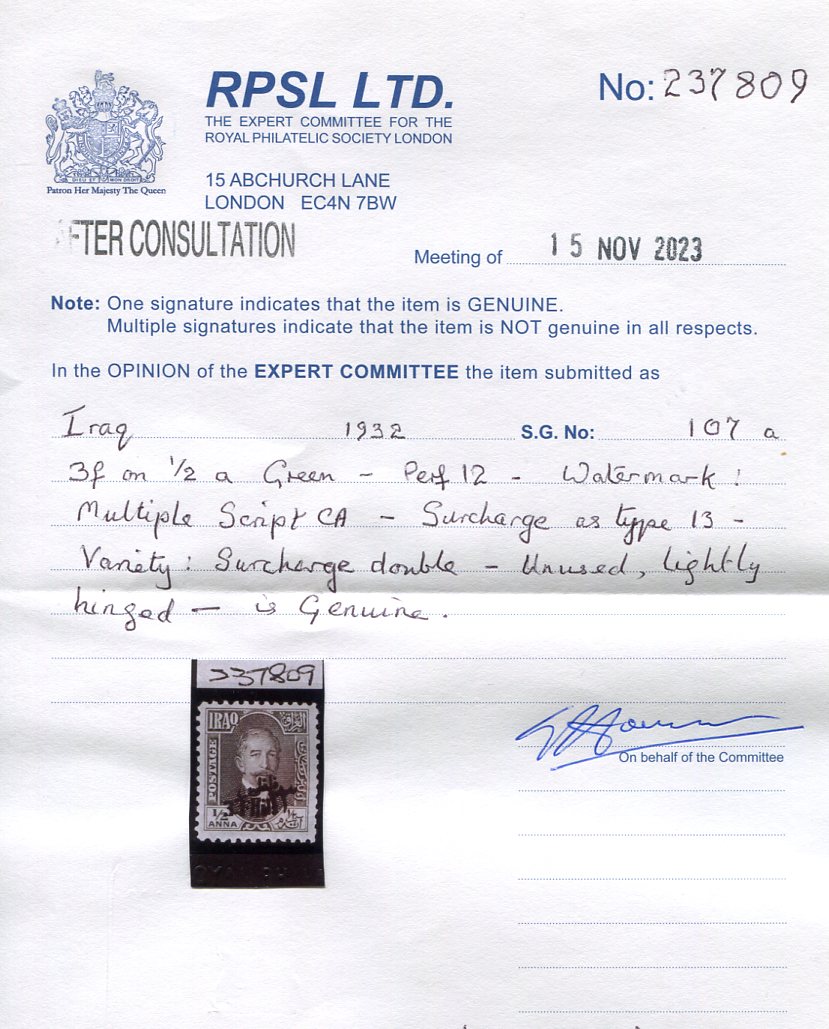 RPSL LTD.
THE EXPERT COMMITTEE FOR THE
ROYAL PHILATELIC SOCIETY LONDON
No: 237809
DIEU ET MON DROIT
Patron Her Majesty The Queen
15 ABCHURCH LANE
LONDON EC4N 7BW
AFTER CONSULTATION
Meeting of 15 NOV 2023
Note: One signature indicates that the item is GENUINE.
Multiple signatures indicate that the item is NOT genuine in all respects.
In the OPINION of the EXPERT COMMITTEE the item submitted as
Iraq 1932 S.G. No: 107 a
3f on 1/2 a Green - Perf 12 - Watermark:
Multiple Script CA - Surcharge as type 13 -
Variety: Surcharge double - Unused, lightly
hinged - is Genuine.
237809
IRAQ العراق
POSTAGE
1/2
ANNA
On behalf of the Committee